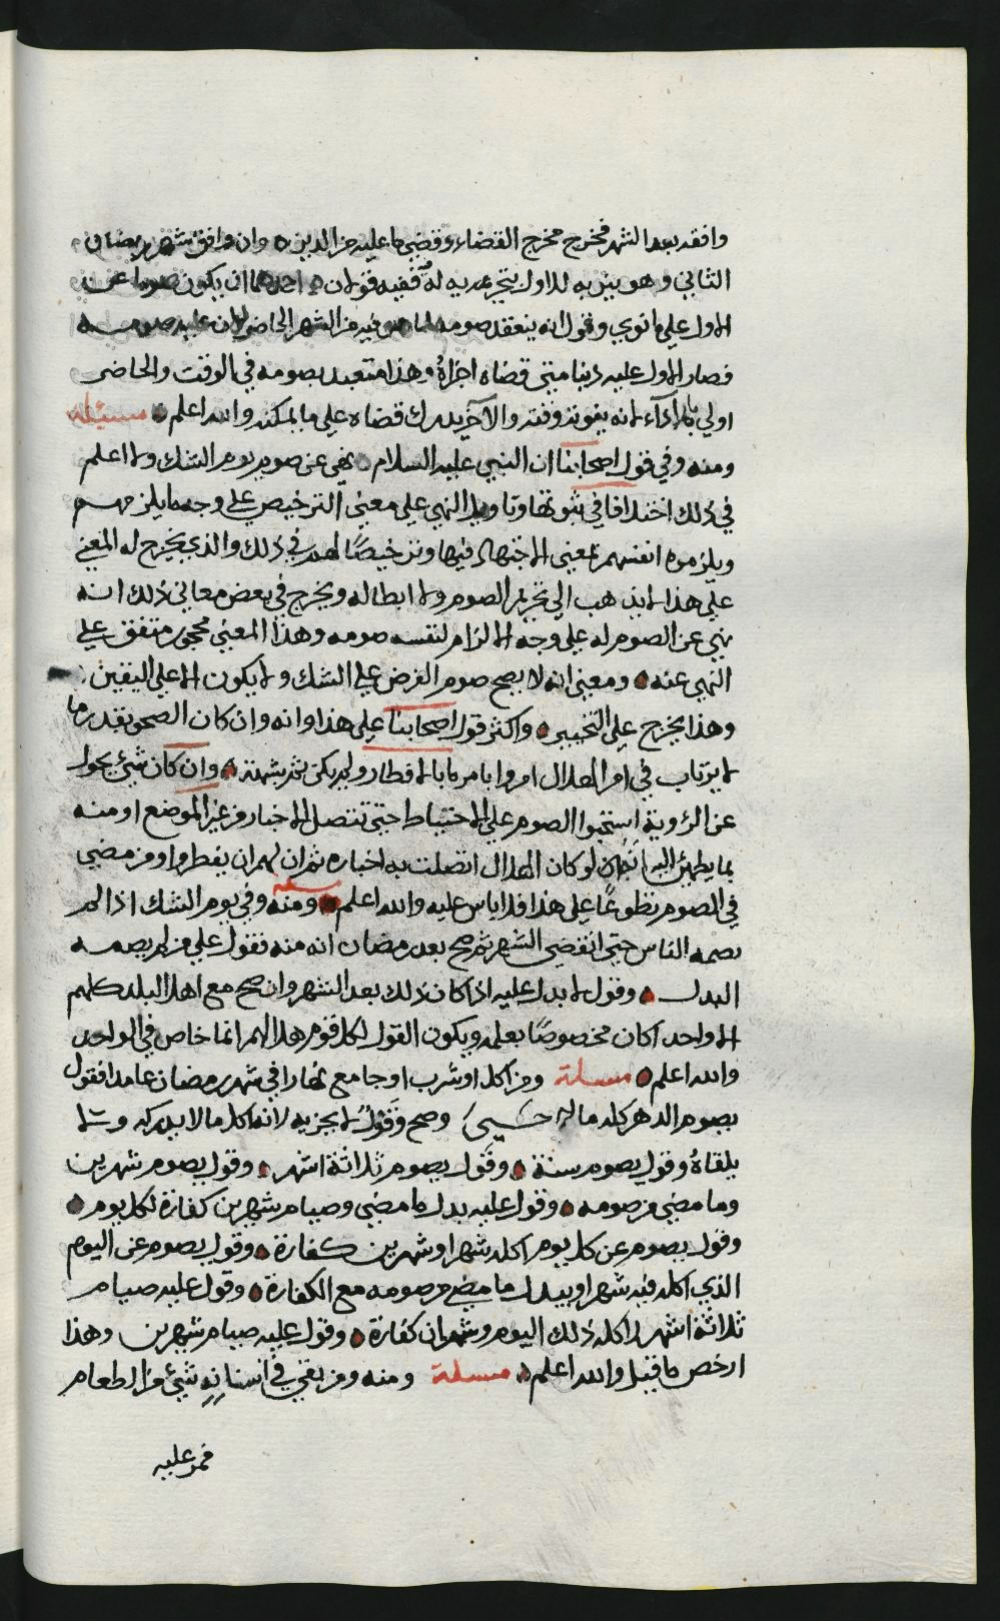 وافقه بعد الشهر مخرج مخرج القضاء وقضي ما عليه من الدين ٥ وان وافق شهر رمضان
الثاني وهو ينويه للاول يتجزء به له ففيه قولان ٥ احدهما ان يكون صوما عن
الاول علي ما نوي وقول انه ينعقد صومه لما هو فيه من الشهر الحاضر لان عليه صومه
فصار الاول عليه دينا متي قضاه اجزاهُ وهذا متعبد بصومه في الوقت والحاضر
اولي بالاداء لانه يفوته وقته والآخر يدرك قضاه علي ما يمكنه والله اعلم ٥ مسئلة
ومنه وفي قول اصحابنا ان النبي عليه السلام ٥ نهي عن صوم يوم الشك ولا اعلم
في ذلك اختلافا في ثبوتها وتاويل النهي علي معني الترخيص علي وجه ما يلزمهم
ويلزموه انفسهم بمعني الاجتهاد فيها وترخيصًا لهم في ذلك والذي يخرج له المعني
علي هذا لا يذهب الي تحريم الصوم ولا ابطاله ويخرج في بعض معاني ذلك انه
نهي عن الصوم له علي وجه الالزام لنفسه صومه وهذا المعني محجور متفق علي
النهي عنه ٥ ومعني انه لا يصح صوم الفرض علي الشك ولا يكون الا علي اليقين
وهذا يخرج علي التخيير ٥ واكثر قول اصحابنا علي هذا وانه وان كان الصحو بقدر ما
لا يرتاب في امر الهلال امروا بامر مابا لافطار ولم يكن ثم شبهة ٥ وان كان شيء يحول
عن الرؤية استحبوا الصوم علي الاحتياط حتي تتصل الاخبار من غير الموضع او منه
بما يطمئن اليه انهان لو كان الهلال اتصلت به اخباره ثم ان لهم ان يفطروا ومن مضي
في الصوم تطوعًا علي هذا فلا باس عليه والله اعلم ٥ مسئلة ومنه وفي يوم الشك اذا لم
يصمه الناس حتي انقضي الشهر ثم صح بعد رمضان انه منه فقول علي من لم يصمه
البدل ٥ وقول لا بدل عليه اذا كان ذلك بعد الشهر وان صح مع اهل البلد كلهم
الا واحدا كان مخصوصًا بعلمه ويكون القول لكل قوم هلالهم انما خاص في الواحد
والله اعلم ٥ مسئلة ومن اكل او شرب او جامع نهارا في شهر رمضان عامدا فقول
بصوم الدهر كله ماله حسيى وصح وقولُ لا يجزيه لانه اكل ما لا يدركه ولا
يلقاهُ وقول يصوم سنة ٥ وقول يصوم ثلاثة اشهر ٥ وقول يصوم شهرين
وما مضي من صومه ٥ وقول عليه بدل ما مضي وصيام شهرين كفارة لكل يوم ٥
وقول يصوم عن كل يوم اكله شهرا وشهرين كفارة ٥ وقول يصوم عن اليوم
الذي اكله فيه شهرا ويبدل ما مضي من صومه مع الكفارة ٥ وقول عليه صيام
ثلاثة اشهر لاكله ذلك اليوم وشهران كفارة ٥ وقول عليه صيام شهرين وهذا
ارخص ما قيل والله اعلم ٥ مسئلة ومنه ومن بقي في اسنانِهِ شيء من الطعام
فمر عليه